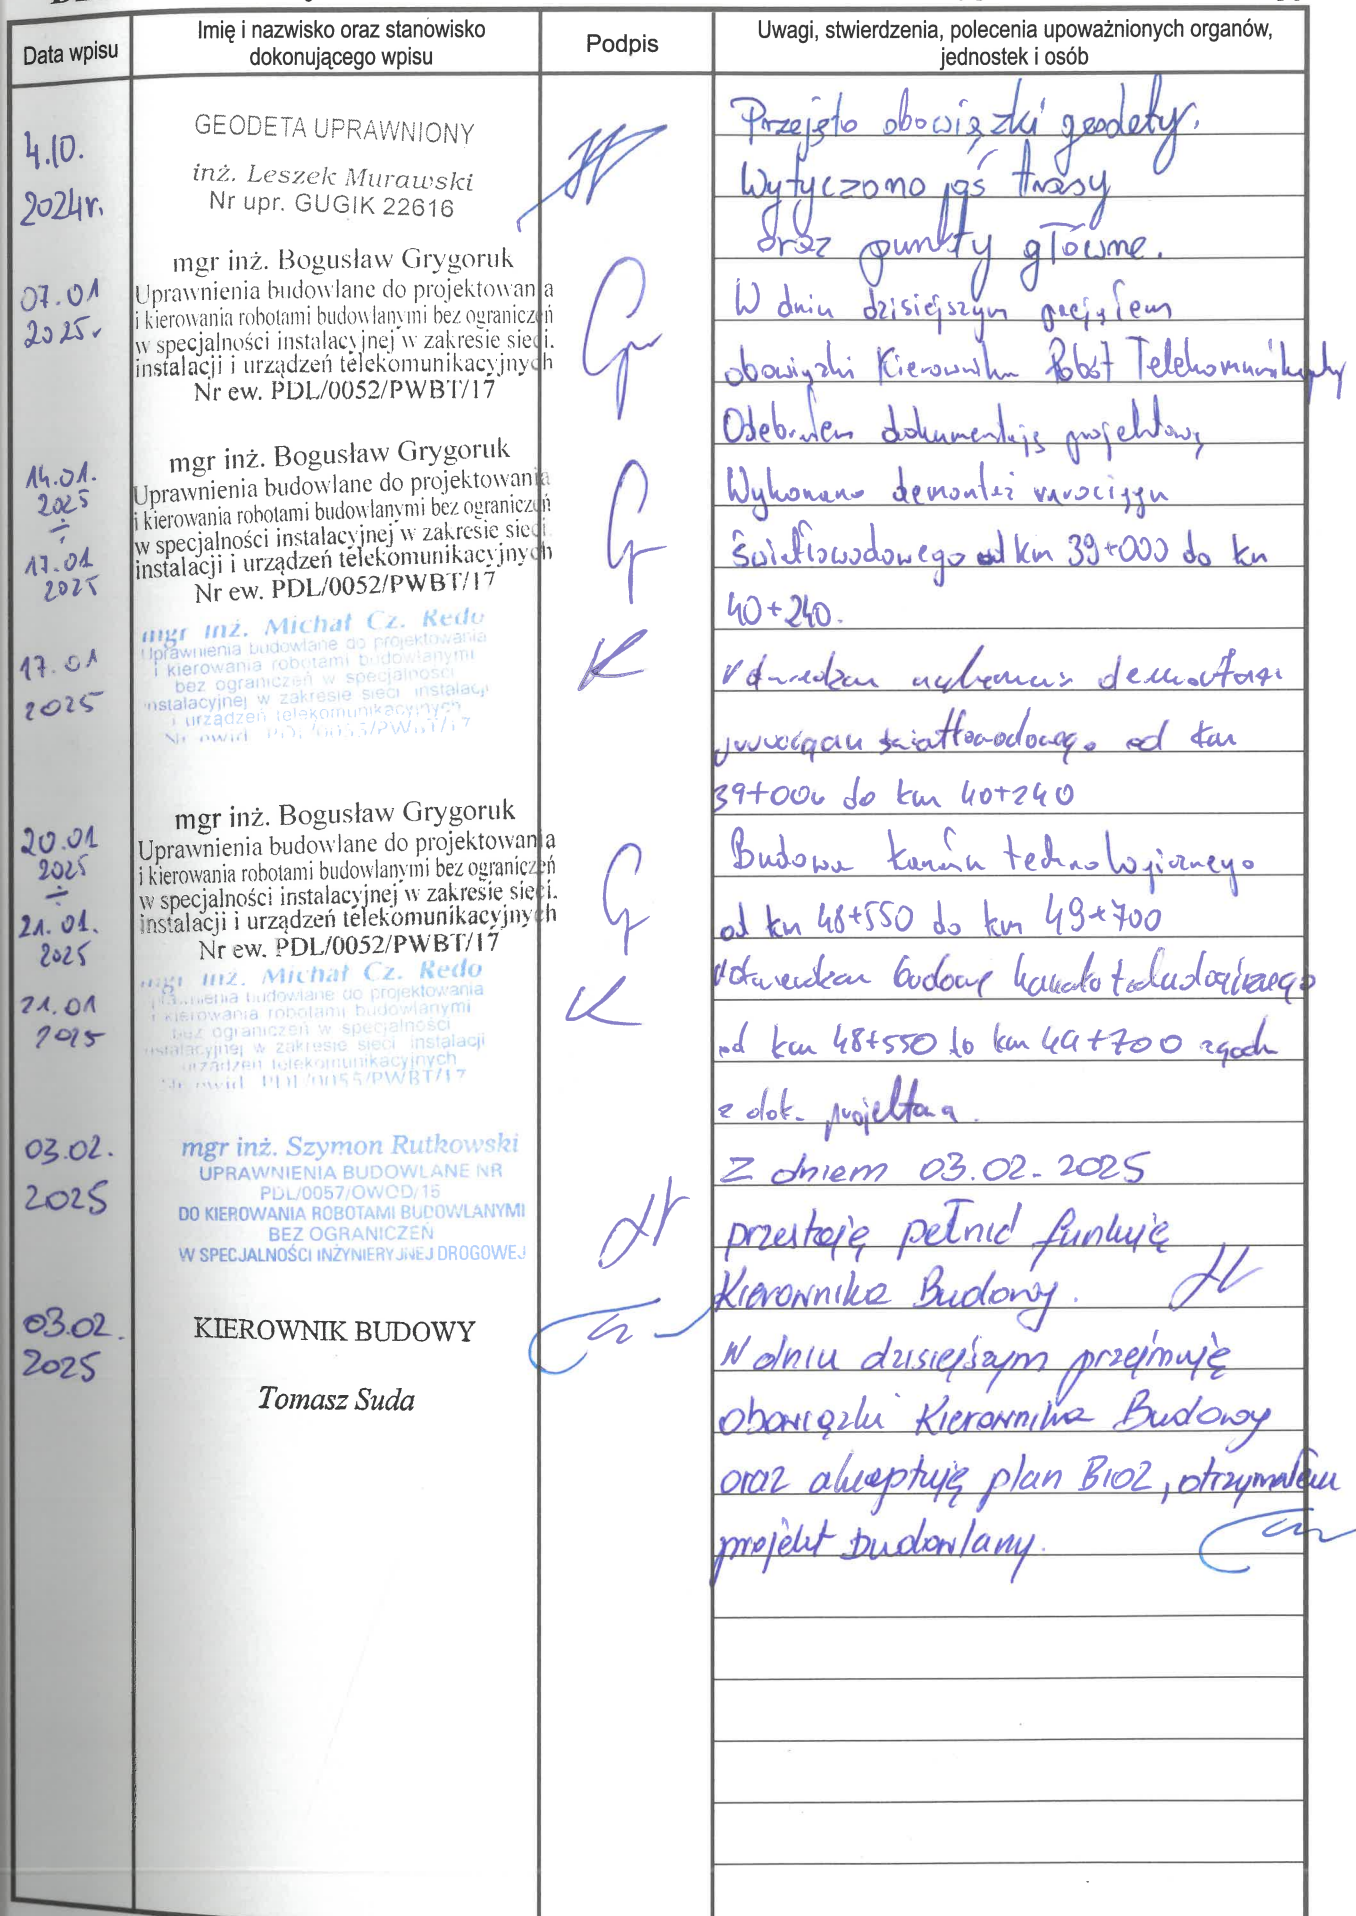 Data wpisu
Imię i nazwisko oraz stanowisko
dokonującego wpisu
Podpis
Uwagi, stwierdzenia, polecenia upoważnionych organów,
jednostek i osób
4.10.
2024r.
GEODETA UPRAWNIONY
inż. Leszek Murawski
Nr upr. GUGIK 22616
Przejęto obowiązki geodety.
Wytyczono oś trasy
oraz punkty główne.
07.01
2025r
mgr inż. Bogusław Grygoruk
Uprawnienia budowlane do projektowania
i kierowania robotami budowlanymi bez ograniczeń
w specjalności instalacyjnej w zakresie sieci.
instalacji i urządzeń telekomunikacyjnych
Nr ew. PDL/0052/PWBT/17
W dniu dzisiejszym przejąłem
obowiązki Kierownika Robót
Odebrałem dokumentację projektową
14.01.
2025
÷
17.01
2025
mgr inż. Bogusław Grygoruk
Uprawnienia budowlane do projektowania
i kierowania robotami budowlanymi bez ograniczeń
w specjalności instalacyjnej w zakresie sieci.
instalacji i urządzeń telekomunikacyjnych
Nr ew. PDL/0052/PWBT/17
Wykonano demontaż rurociągu
światłowodowego od km 39+000 do km
40+240.
17.01
2025
mgr inż. Michał Cz. Redo
Uprawnienia budowlane do projektowania
i kierowania robotami budowlanymi
bez ograniczeń w specjalności
instalacyjnej w zakresie sieci instalacji
i urządzeń telekomunikacyjnych
Nr ewid. PDL/0055/PWBT/17
demontażu
rurociągu światłowodowego od km
39+000 do km 40+240
20.01
2025
÷
21.01.
2025
mgr inż. Bogusław Grygoruk
Uprawnienia budowlane do projektowania
i kierowania robotami budowlanymi bez ograniczeń
w specjalności instalacyjnej w zakresie sieci.
instalacji i urządzeń telekomunikacyjnych
Nr ew. PDL/0052/PWBT/17
Budowa kanału technologicznego
od km 48+550 do km 49+700
21.01
2025
mgr inż. Michał Cz. Redo
Uprawnienia budowlane do projektowania
i kierowania robotami budowlanymi
bez ograniczeń w specjalności
instalacyjnej w zakresie sieci instalacji
i urządzeń telekomunikacyjnych
Nr ewid. PDL/0055/PWBT/17
budowę kanału technologicznego
od km 48+550 do km 49+700 zgodn
z dok. projektową.
03.02.
2025
mgr inż. Szymon Rutkowski
UPRAWNIENIA BUDOWLANE NR
PDL/0057/OWOD/15
DO KIEROWANIA ROBOTAMI BUDOWLANYMI
BEZ OGRANICZEŃ
W SPECJALNOŚCI INŻYNIERYJNEJ DROGOWEJ
Z dniem 03.02.2025
przestaję pełnić funkcję
Kierownika Budowy.
03.02.
2025
KIEROWNIK BUDOWY
Tomasz Suda
W dniu dzisiejszym przejmuję
obowiązki Kierownika Budowy
oraz akceptuję plan BIOZ, otrzymałem
projekt budowlany.